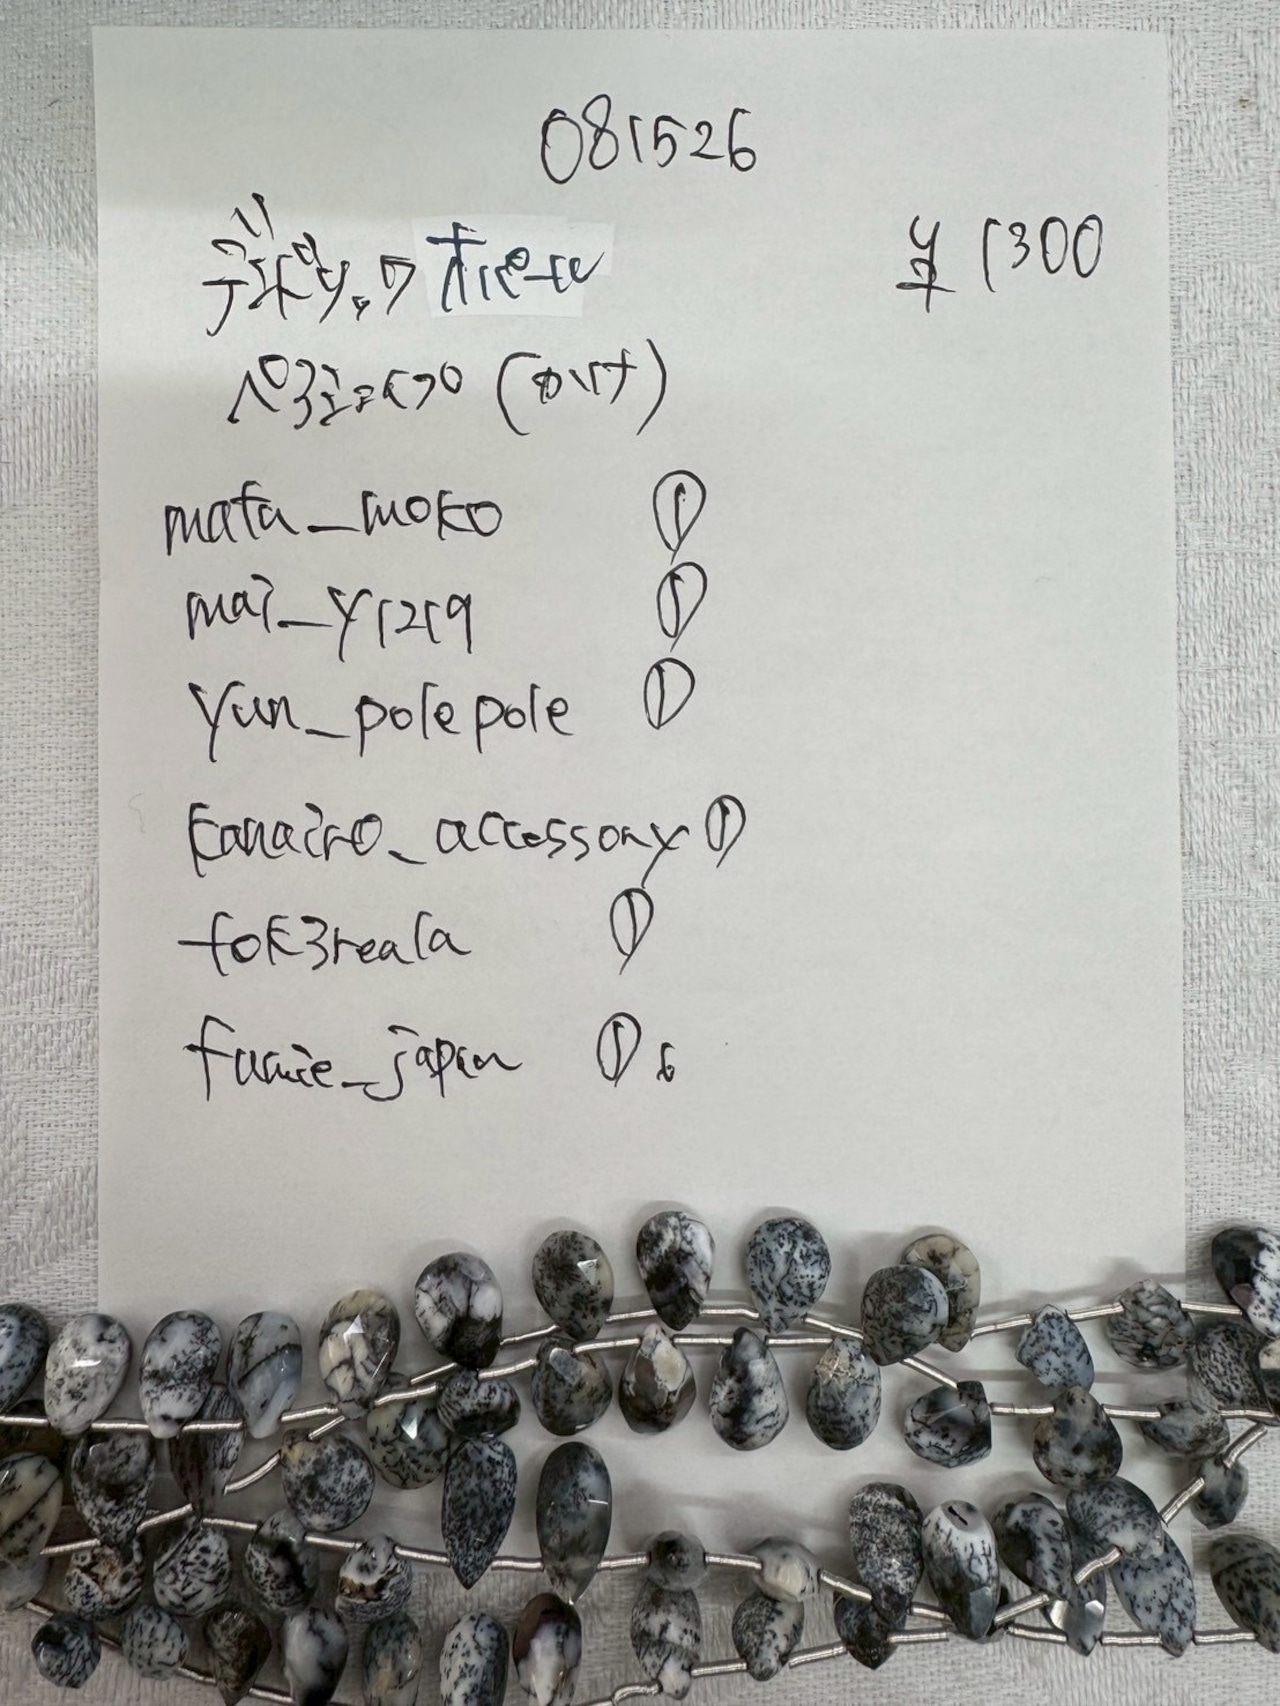 081526
デンドリチックオパール ¥1300
ペアシェイプ(カット)
mata_moko ①
mai_y1219
yun_polepole ①
kanairo_accessory ①
tok3reala ①
fumie_japan ① 6